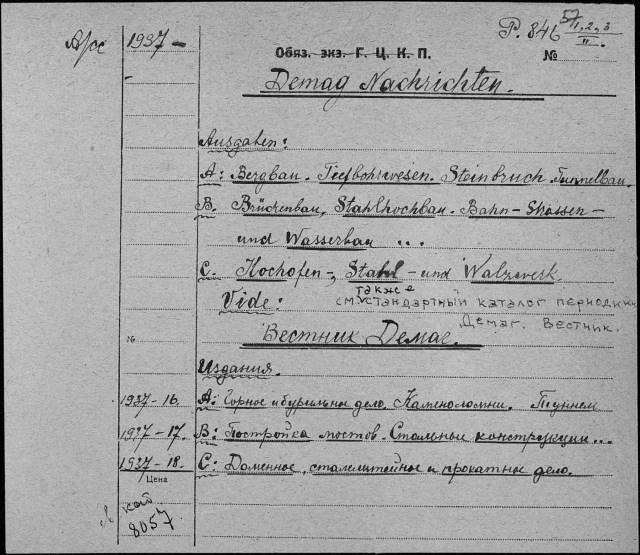 Арх 1937 —
Р. 846 57/II, 2, 3
II.
Обяз. экз. Г. Ц. К. П. №
Demag Nachrichten.
Ausgaben:
A: Bergbau. Tiefbohrwesen. Steinbruch. Tunnelbau.
B. Brückenbau, Stahlhochbau. Bahn- Strassen-
und Wasserbau ...
C. Hochofen-, Stahl - und Walzwerk
Vide: см. также стандартный каталог периодики
Демаг. Вестник.
№ Вестник Демаг.
Издания.
1937-16. A: Горное и бурильное дело. Каменоломни. Туннели
1937-17. B: Постройка мостов. Стальные конструкции...
1937-18. C: Доменное, сталелитейное и прокатное дело.
Цена
каб
8057